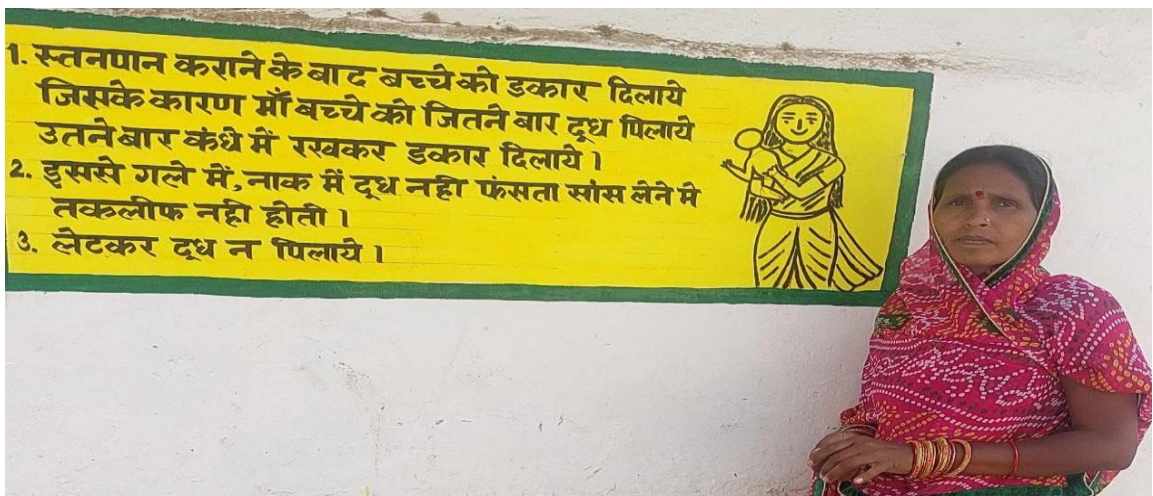 1. स्तनपान कराने के बाद बच्चे को डकार दिलाये
जिसके कारण माँ बच्चे को जितने बार दूध पिलाये
उतने बार कंधे में रखकर डकार दिलाये।
2. इससे गले में, नाक में दूध नही फंसता सांस लेने मे
तकलीफ नही होती।
3. लेटकर दूध न पिलाये।